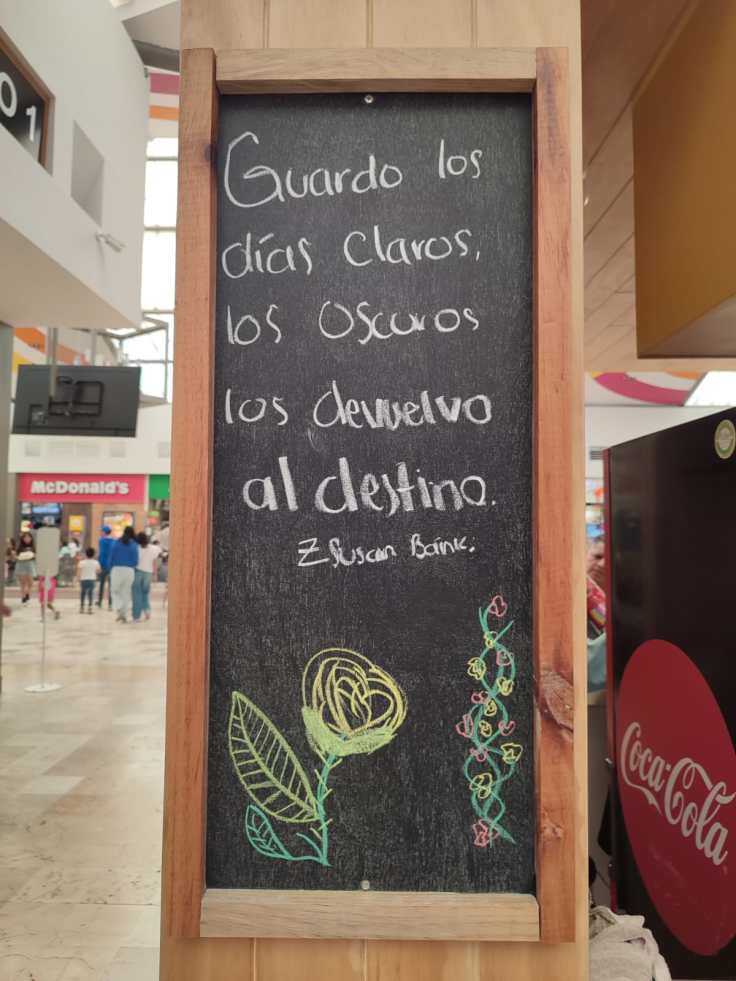 01
Guardo los
días claros,
los oscuros
los devuelvo
al destino.
Zsuscan Bánk.
McDonald's
Coca-Cola